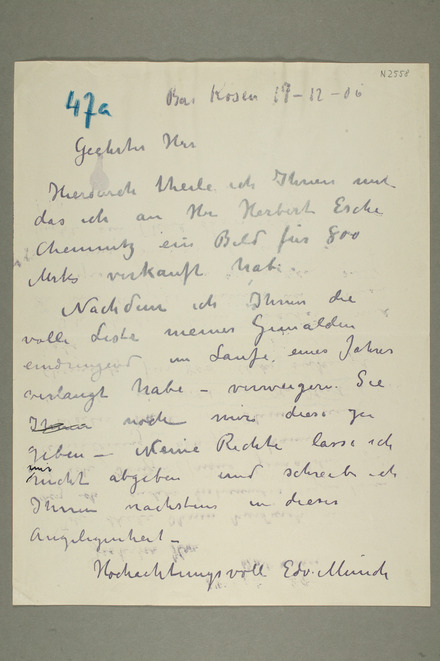 N 2558
47a
Bad Kösen 17-12-06
Geehrter Herr
Hierdurch theile ich Ihnen mit
das ich an Hr Herbert Esche
Chemnitz ein Bild für 800
Mrks verkauft habe.
Nachdem ich Ihnen die
volle Liste meines Gemälden
eindringend im Laufe eines Jahres
verlangt habe – verweigern Sie
noch mir diese zu
geben – Meine Rechte lasse ich
mir
nicht abgeben und schreibe ich
Ihnen nächstens in dieser
Angelegenheit –
Hochachtungsvoll Edv. Munch